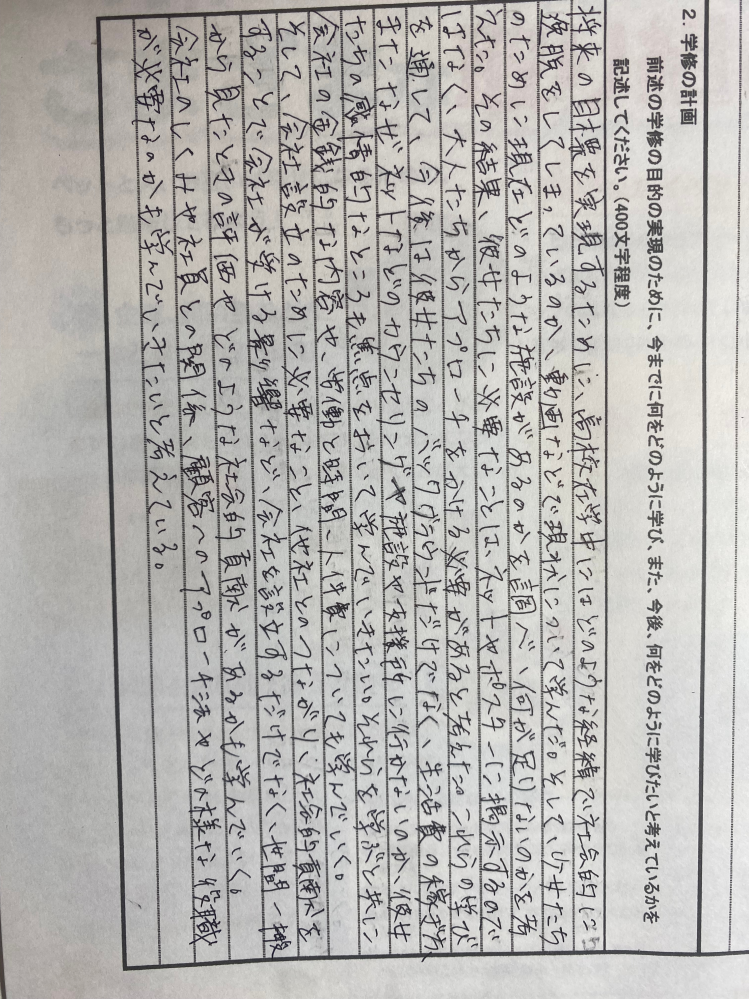 2. 学修の計画
前述の学修の目的の実現のために、今までに何をどのように学び、また、今後、何をどのように学びたいと考えているかを
記述してください。（400文字程度）
将来の目標を実現するために、高校在学中にはどのような経緯で社会的に
逸脱をしてしまっているのか、動画などで現状について学んだ。そして、少女たち
のために現在どのような施設があるのかを調べ、何が足りないのかを考
えた。その結果、彼女たちに必要なことは、ネットやポスターに掲示するのだ
はなく、大人たちからアプローチをかける必要があると考えた。これらの学び
を通して、今後は彼女たちのバックグラウンドだけでなく、生活費の稼ぎ方、
またなぜネットなどのカウンセリングや施設や支援所に行かないのか、彼女
たちの感情的なところも焦点をおいて学んでいきたい。それらを学ぶと共に
会社の金銭的な内容や、労働と時間、人件費についても学んでいく。
そして、会社設立のために必要なこと、他社とのつながり、社会的貢献を
することで会社が受ける影響など、会社を設立するだけでなく、世間一般
から見たときの評価やどのような社会的貢献があるかも学んでいく。
会社のしくみや社員との関係、顧客へのアプローチ法やどの様な役職
が必要なのかも学んでいきたいと考えている。